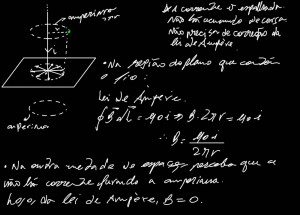 amperiana
2πr
* A corrente é espalhada
Não há acúmulo de carga
Não precisa de correção da
lei de Ampère.
• Na região do plano que contém
o fio:
Lei de Ampère.
∮B⃗·dl⃗ = μ₀i ⇒ B·2πr = μ₀i
∴ B = μ₀i / 2πr
amperiana
• Na outra metade do espaço perceba que
não há corrente furando a amperiana.
Logo, da lei de Ampère, B = 0.